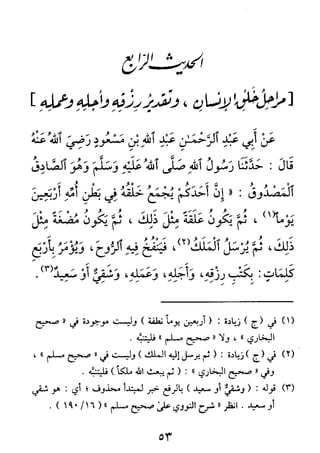 الحديث الرابع
[ مراحل خلق الإنسان ، وتقدير رزقه وأجله وعمله ]
عَنْ أَبِي عَبْدِ الرَّحْمَنِ عَبْدِ اللهِ بْنِ مَسْعُودٍ رَضِيَ اللهُ عَنْهُ
قَالَ : حَدَّثَنَا رَسُولُ اللهِ صَلَّى اللهُ عَلَيْهِ وَسَلَّمَ وَهُوَ الصَّادِقُ
الْمَصْدُوقُ : « إِنَّ أَحَدَكُمْ يُجْمَعُ خَلْقُهُ فِي بَطْنِ أُمِّهِ أَرْبَعِينَ
يَوْماً(١) ، ثُمَّ يَكُونُ عَلَقَةً مِثْلَ ذَلِكَ ، ثُمَّ يَكُونُ مُضْغَةً مِثْلَ
ذَلِكَ ، ثُمَّ يُرْسَلُ الْمَلَكُ(٢) ، فَيَنْفُخُ فِيهِ الرُّوحَ ، وَيُؤْمَرُ بِأَرْبَعِ
كَلِمَاتٍ : بِكَتْبِ رِزْقِهِ ، وَأَجَلِهِ ، وَعَمَلِهِ ، وَشَقِيٌّ أَوْ سَعِيدٌ(٣) .
(١) في (ج) زيادة : ( أربعين يوماً نطفة ) وليست موجودة في « صحيح
البخاري » ، ولا « صحيح مسلم » فليتنبَّه .
(٢) في (ج) زيادة : ( ثم يرسل إليه الملك ) وليست في « صحيح مسلم » ،
وفي « صحيح البخاري » : ( ثم يبعث الله ملكاً ) فليتنبَّه .
(٣) قوله : ( وشقيٌّ أو سعيد ) بالرفع خبر لمبتدأ محذوف ؛ أي : هو شقي
أو سعيد . انظر « شرح النووي على صحيح مسلم » ( ١٦/ ١٩٠ ) .
٥٣